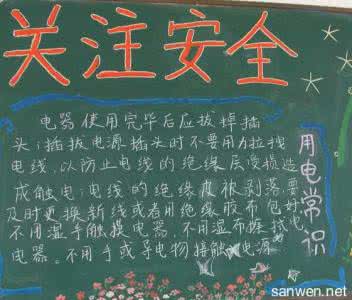 关注安全
电器使用完毕后应拔掉插
头；插拔电源插头时不要用力拉拽
电线，以防止电线的绝缘层受损造
成触电；电线的绝缘皮被剥落，要
及时更换新线或者用绝缘胶布包好。
不用湿手触摸电器，不用湿布擦拭电
器。不用手或导电物接触电源
用电常识
sanwen.net